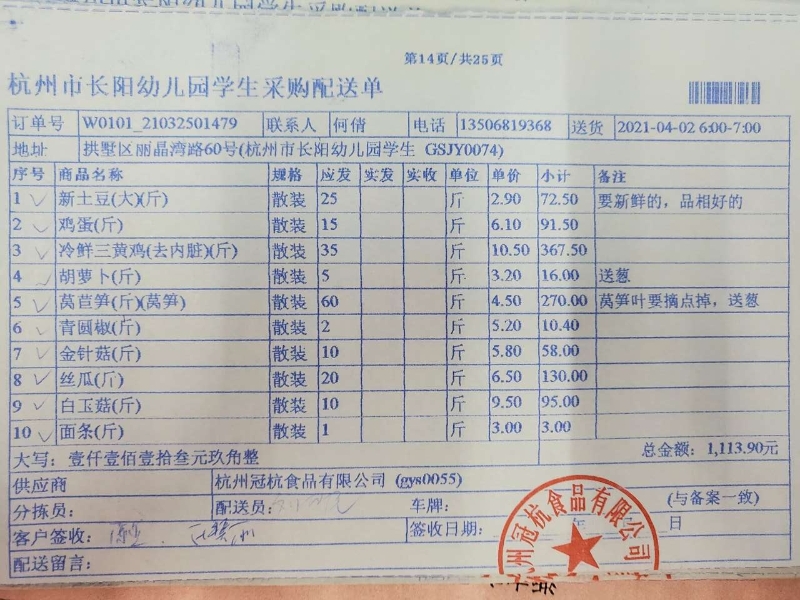 第14页/共25页
杭州市长阳幼儿园学生采购配送单
订单号 W0101_21032501479 联系人 何倩 电话 13506819368 送货 2021-04-02 6:00-7:00
地址 拱墅区丽晶湾路60号(杭州市长阳幼儿园学生 GSJY0074)
序号 商品名称 规格 应发 实发 实收 单位 单价 小计 备注
1 新土豆(大)(斤) 散装 25 斤 2.90 72.50 要新鲜的，品相好的
2 鸡蛋(斤) 散装 15 斤 6.10 91.50
3 冷鲜三黄鸡(去内脏)(斤) 散装 35 斤 10.50 367.50
4 胡萝卜(斤) 散装 5 斤 3.20 16.00 送葱
5 莴苣笋(斤)(莴笋) 散装 60 斤 4.50 270.00 莴笋叶要摘点掉，送葱
6 青圆椒(斤) 散装 2 斤 5.20 10.40
7 金针菇(斤) 散装 10 斤 5.80 58.00
8 丝瓜(斤) 散装 20 斤 6.50 130.00
9 白玉菇(斤) 散装 10 斤 9.50 95.00
10 面条(斤) 散装 1 斤 3.00 3.00
大写：壹仟壹佰壹拾叁元玖角整 总金额：1,113.90元
供应商 杭州冠杭食品有限公司 (gys0055)
分拣员： 配送员： 车牌： (与备案一致)
客户签收： 签收日期： 年 日
配送留言：
州冠杭食品有限公司